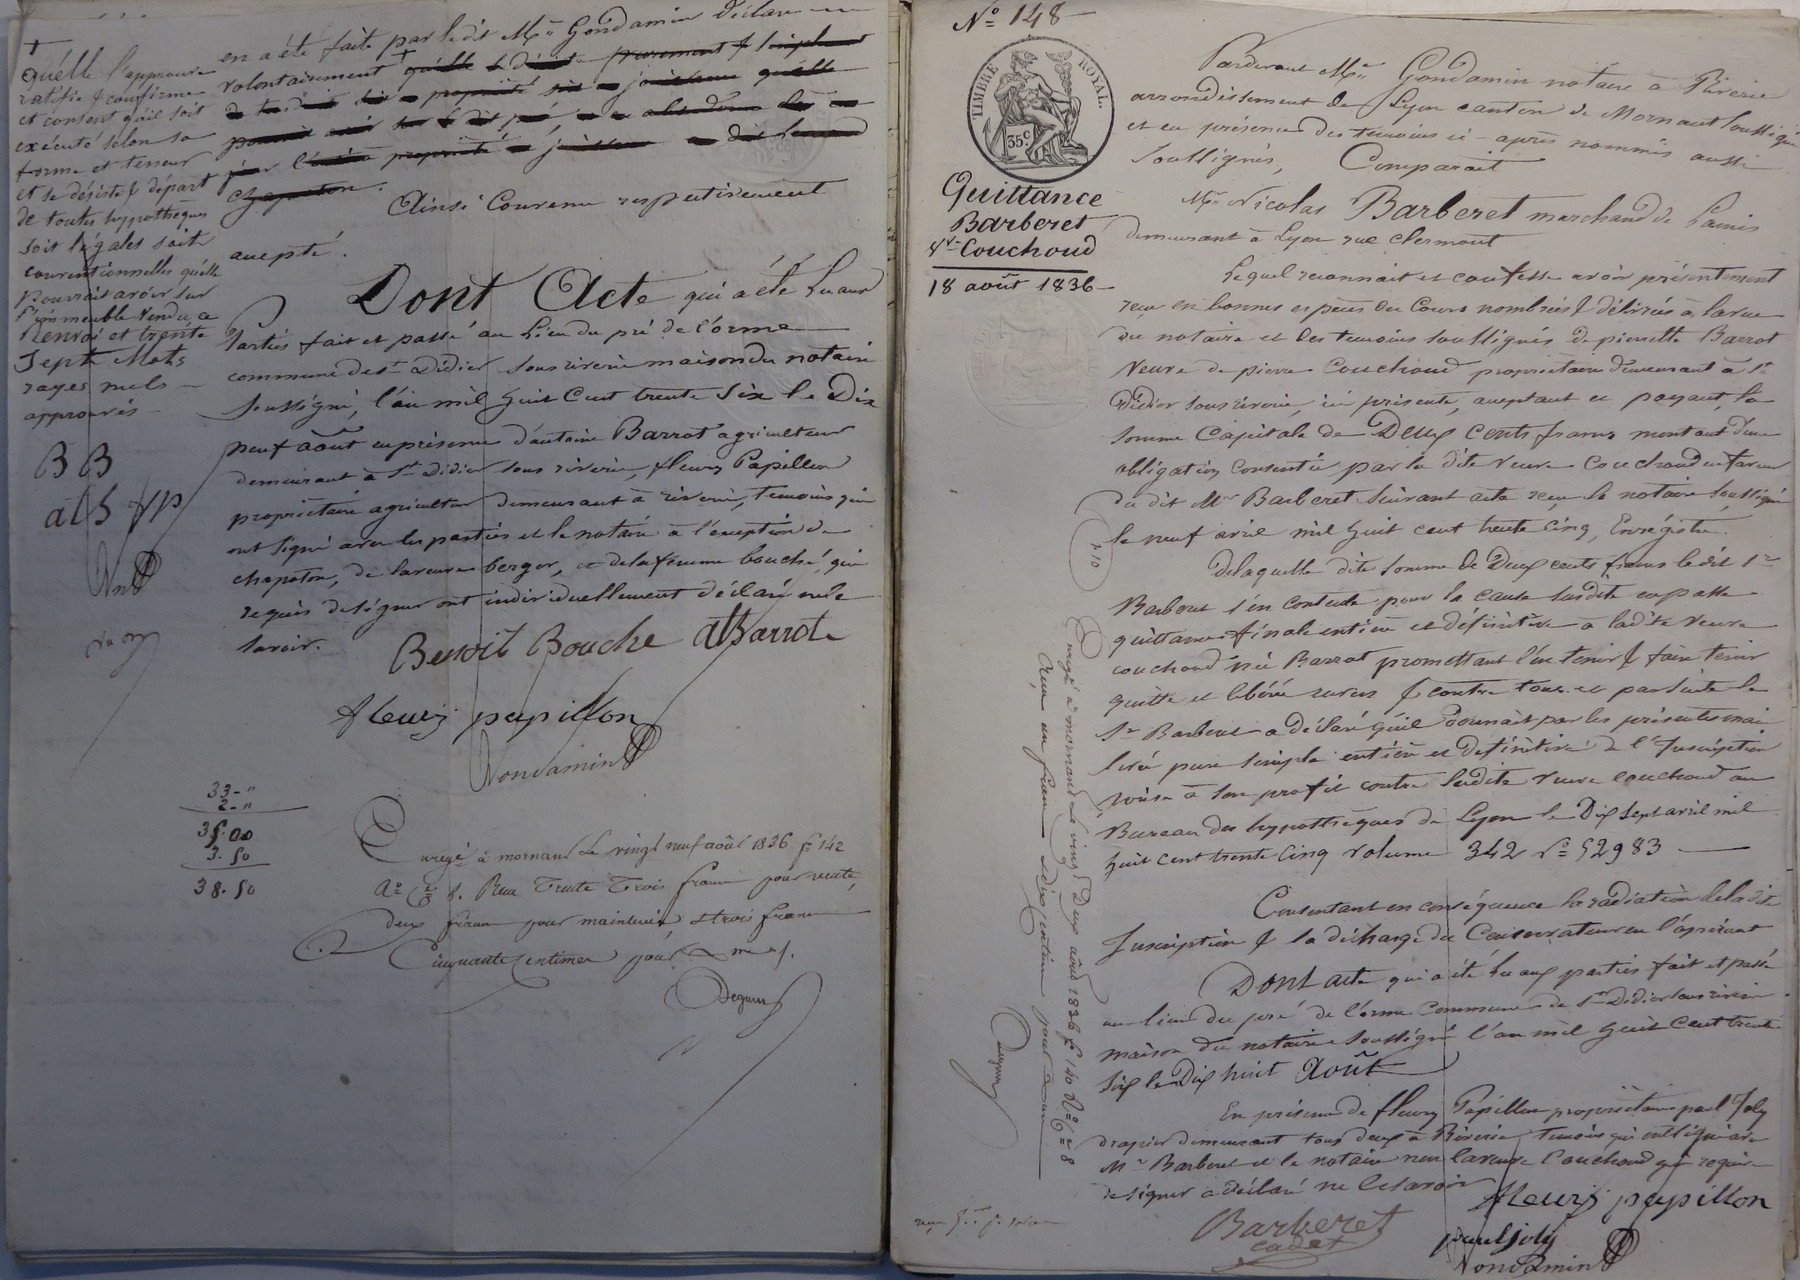 en a été faite par le dit Me Gondamin déclare
volontairement
Ainsi Convenu respectivement
accepté.
Dont Acte qui a été Lu aux
Parties fait et passé au Lieu du pré de l'orme
commune de st Didier sous riverie maison du notaire
soussigné, l'an mil huit Cent trente Six le Dix
neuf août en présence d'antoine Barrot agriculteur
demeurant à St Didier sous riverie, fleury Papillon
propriétaire agriculteur demeurant à riverie, temoins qui
ont signé avec les parties et le notaire à l'exception de
chapoton, de la veuve berger, et de la femme bouché, qui
requis de signer ont individuellement déclaré ne le
savoir.
Benoit Bouche ABarrot
fleury papillon
Gondamin
+
qu'elle l'approuve
ratifie & confirme
et consent qu'il soit
exécuté selon sa
forme et teneur
et se désiste & départ
de toutes hypothèques
soit légales soit
conventionnelles qu'elle
pourrait avoir sur
l'immeuble vendu
Renvoi et trente
Sept Mots
rayés nuls
approuvés
BB
aB fp
33-"
2-"
35.00
3.50
38.50
Enregé à mornant Le vingt neuf août 1836 fo 142
Ro Ce 8. Recu Trente Trois francs pour vente,
deux francs pour mainlevée & trois francs
Cinquante Centimes pour
Deguin
No 148
TIMBRE ROYAL.
35c
Quittance
Barberet
Vve Couchoud
18 août 1836
Pardevant Me Gondamin notaire à Riverie
arrondissement de Lyon canton de Mornant soussigné
et en présence des temoins ci-après nommés aussi
soussignés, Comparait
Mr Nicolas Barberet marchand de
demeurant à Lyon rue Clermont
Lequel reconnait et confesse avoir présentement
reçu en bonnes espèces du Cours nombrées & délivrées à la vue
du notaire et des temoins soussignés de pierrette Barrot
veuve de pierre Couchoud propriétaire demeurant à St
Didier sous riverie, ici présente, acceptant et payant, la
somme Capitale de Deux Cents francs montant d'une
obligation consentie par la dite veuve Couchoud en faveur
du dit Mr Barberet suivant acte reçu le notaire soussigné
le neuf avril mil huit cent trente Cinq, Enregistré.
De laquelle dite somme de Deux cents francs le dit Sr
Barberet s'en contente pour la cause susdite en passe
quittance finale entière et définitive à ladite veuve
couchoud née Barrot promettant l'en tenir & faire tenir
quitte et libérée envers & contre tous et par suite le
Sr Barberet a déclaré qu'il donnait par les présentes main
levée pure simple entière et définitive de l'Inscription
prise à son profit contre ladite veuve couchoud au
Bureau des hypothèques de Lyon le Dix sept avril mil
huit cent trente Cinq volume 342 No 52983
Consentant en conséquence la radiation de la dite
Inscription & la décharge du Conservateur en l'opérant
Dont acte qui a été lu aux parties fait et passé
au lieu du pré de l'orme commune de St Didier sous riverie
maison du notaire soussigné l'an mil huit Cent trente
Six le Dix huit Août
En présence de fleury Papillon propriétaire paul Joly
drapier demeurant tous deux à Riverie, temoins qui ont signé avec
Mr Barberet et le notaire non la veuve Couchoud qui requise
de signer a déclaré ne le savoir
fleury papillon
Barberet
cadet
paul joly
Gondamin
Enregé à mornant Le vingt Deux août 1836 fo 140 Ro Ce 8
Recu un franc dix centimes pour
Deguin